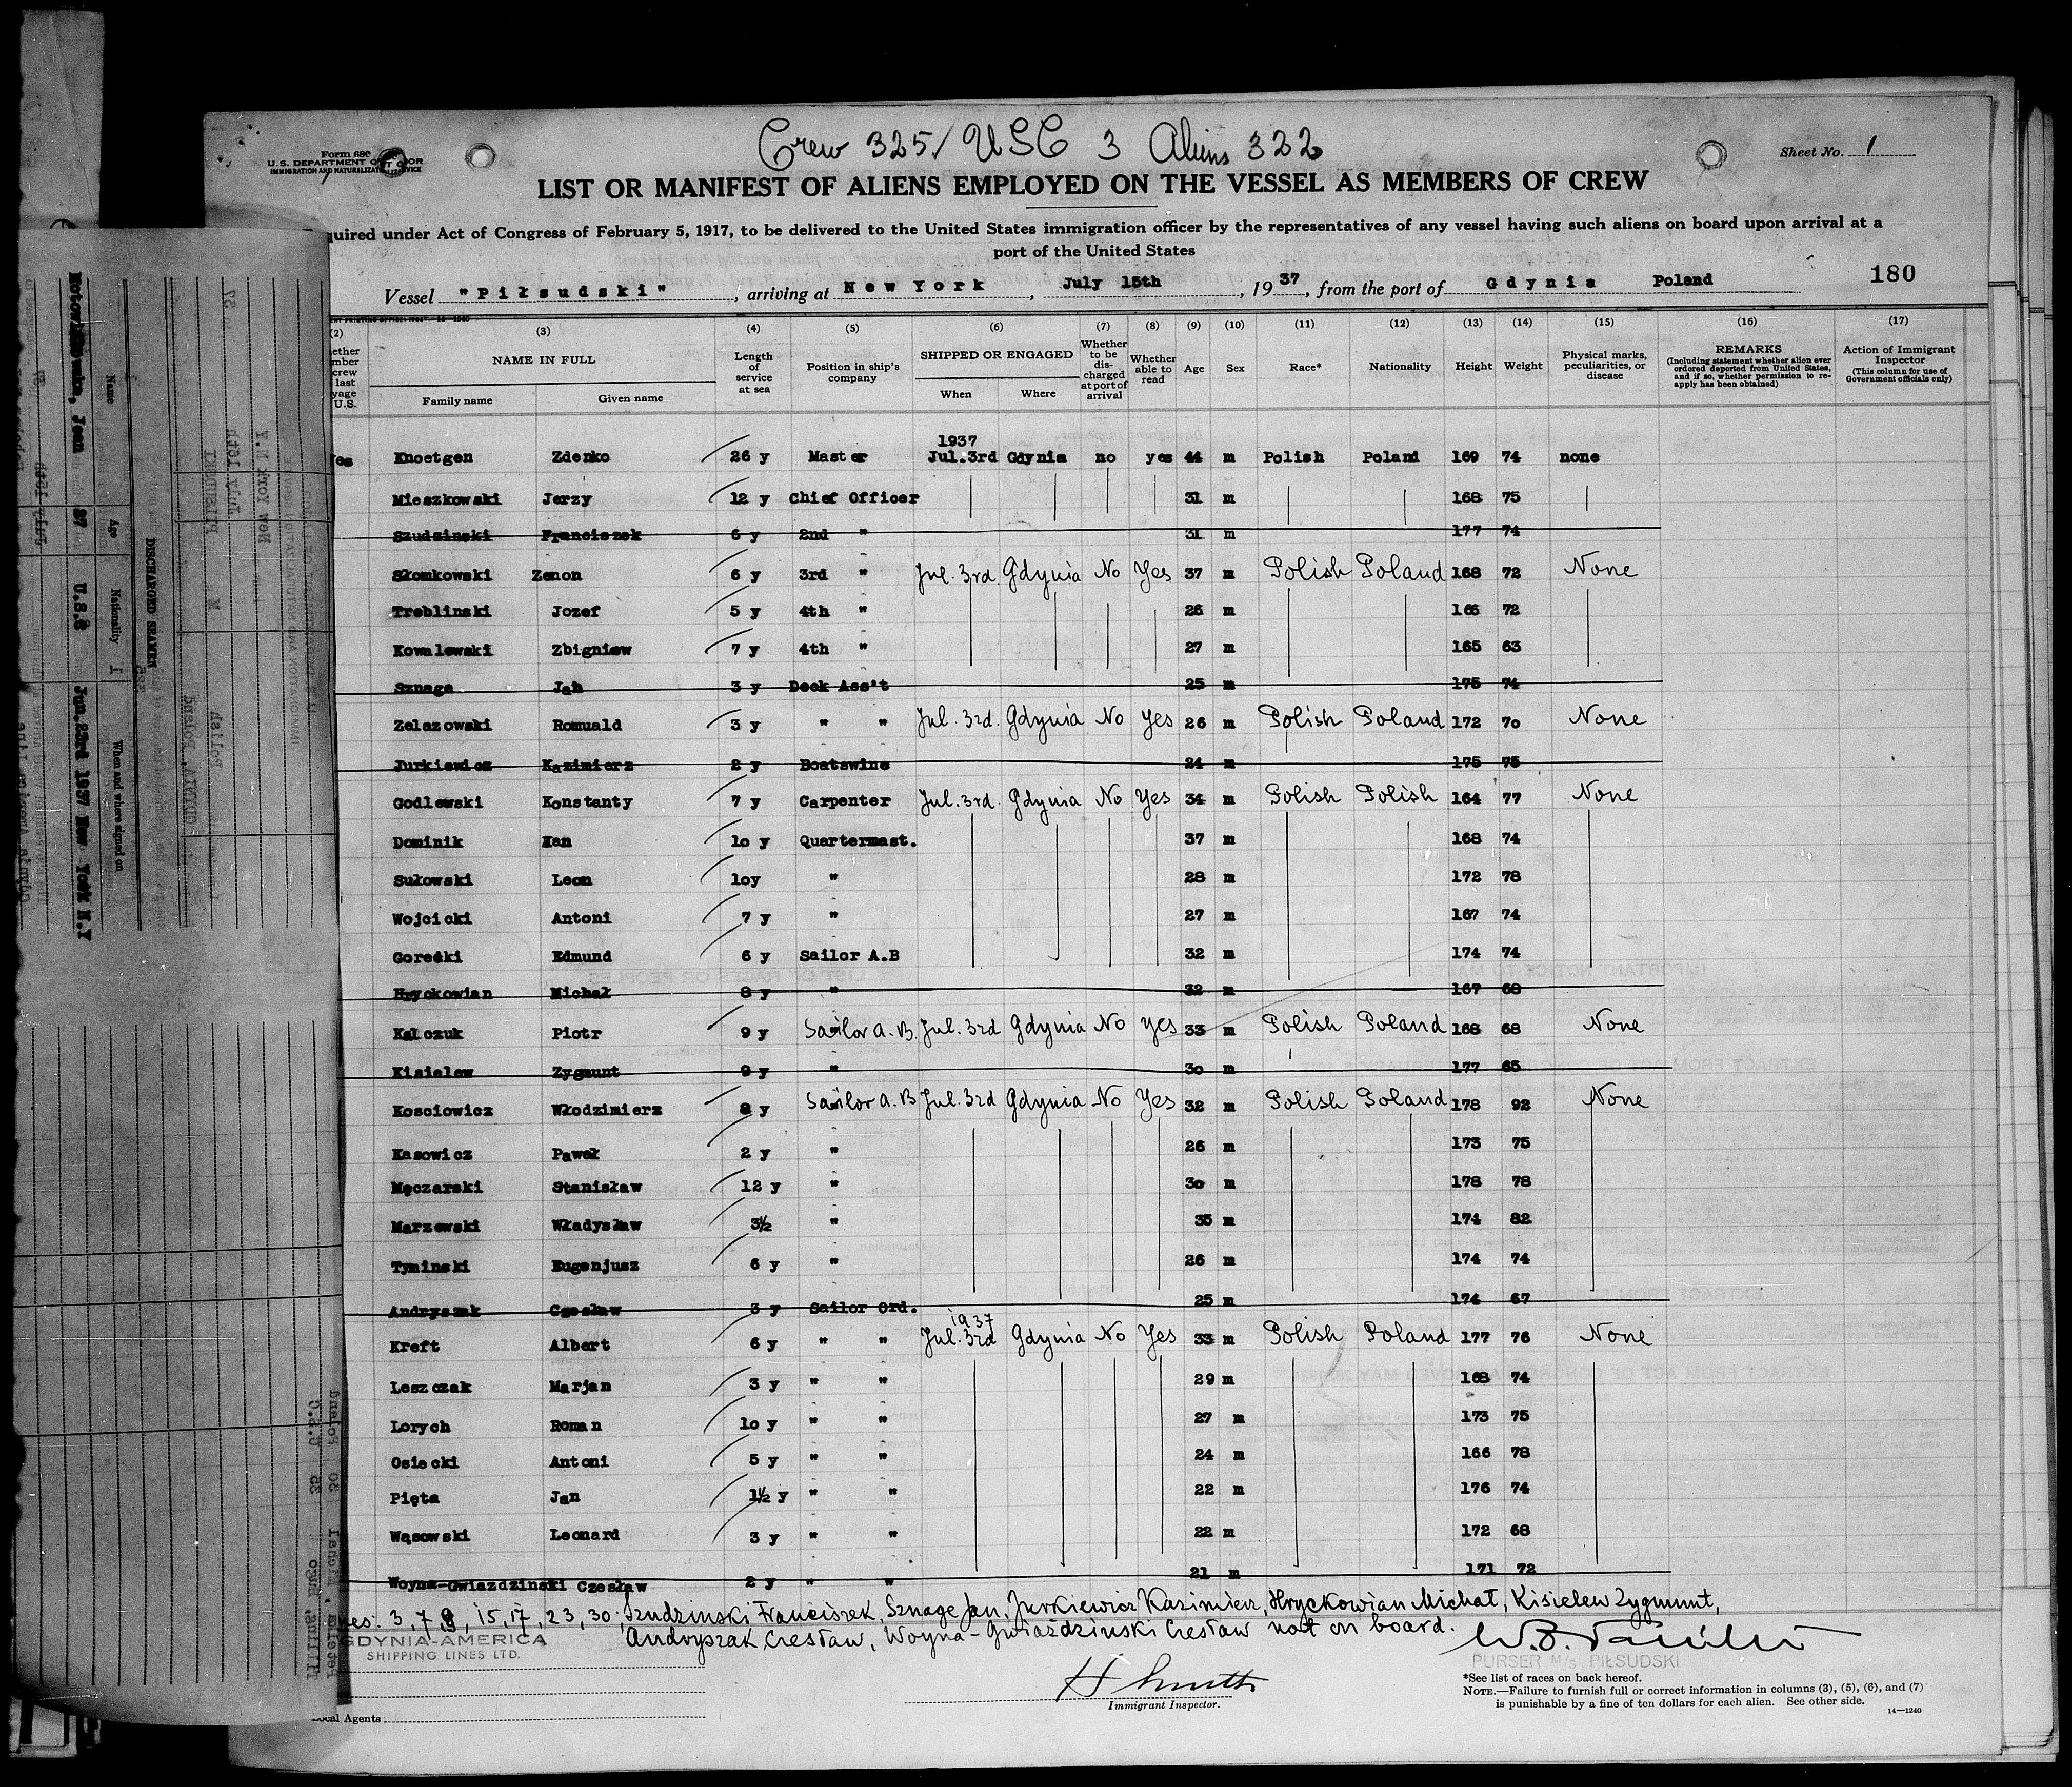 Crew 325/ USC 3 Aliens 322
Form 680
U.S. DEPARTMENT OF
IMMIGRATION AND NATURALIZATION SERVICE
Sheet No. 1
LIST OR MANIFEST OF ALIENS EMPLOYED ON THE VESSEL AS MEMBERS OF CREW
quired under Act of Congress of February 5, 1917, to be delivered to the United States immigration officer by the representatives of any vessel having such aliens on board upon arrival at a
port of the United States
Vessel "Piłsudski", arriving at New York, July 15th, 1937, from the port of Gdynia Poland 180
(2) (3) (4) (5) (6) (7) (8) (9) (10) (11) (12) (13) (14) (15) (16) (17)
NAME IN FULL
Family name Given name
Length of service at sea
Position in ship's company
SHIPPED OR ENGAGED
When Where
Whether to be discharged at port of arrival
Whether able to read
Age Sex Race* Nationality Height Weight
Physical marks, peculiarities, or disease
REMARKS
(Including statement whether alien ever ordered deported from United States, and if so, whether permission to reapply has been obtained)
Action of Immigrant Inspector
(This column for use of Government officials only)
1937
Knoetgen Zdenko 26 y Master Jul.3rd Gdynia no yes 44 m Polish Poland 169 74 none
Mieszkowski Jerzy 12 y Chief Officer 31 m 168 75
Szudzinski Franciszek 6 y 2nd " 31 m 177 74
Słomkowski Zenon 6 y 3rd " Jul. 3rd. Gdynia No Yes 37 m Polish Poland 168 72 None
Treblinski Jozef 5 y 4th " 26 m 166 72
Kowalewski Zbigniew 7 y 4th " 27 m 165 63
Sznage Jan 3 y Deck Ass't 25 m 175 74
Zelazowski Romuald 3 y " " Jul. 3rd. Gdynia No Yes 26 m Polish Poland 172 70 None
Jurkiewicz Kazimierz 2 y Boatswine 24 m 175 75
Godlewski Konstanty 7 y Carpenter Jul. 3rd. Gdynia No Yes 34 m Polish Polish 164 77 None
Dominik Man 10 y Quartermast. 37 m 168 74
Sułowski Leon 10y " 28 m 172 78
Wojcicki Antoni 7 y " 27 m 167 74
Gorecki Edmund 6 y Sailor A.B 32 m 174 74
Hryckowian Michał 8 y " 32 m 167 68
Kalczuk Piotr 9 y Sailor a. B. Jul. 3rd Gdynia No Yes 33 m Polish Poland 168 68 None
Kisielew Zygmunt 9 y " 30 m 177 65
Kosciowicz Włodzimierz 8 y Sailor a. B Jul. 3rd Gdynia No Yes 32 m Polish Poland 178 92 None
Kasowicz Paweł 2 y " 26 m 173 75
Męczarski Stanisław 12 y " 30 m 178 78
Marzewski Władysław 3½ " 35 m 174 82
Tyminski Eugenjusz 6 y " 26 m 174 74
Andryszak Czesław 3 y Sailor Ord. 25 m 174 67
1937
Kreft Albert 6 y " " Jul. 3rd Gdynia No Yes 33 m Polish Poland 177 76 None
Leszczak Marjan 3 y " " 29 m 168 74
Lorych Roman 10 y " " 27 m 173 75
Osiecki Antoni 5 y " " 24 m 166 78
Pięta Jan 1½ y " " 22 m 176 74
Wąsowski Leonard 3 y " " 22 m 172 68
Woyna-Gwiazdzinski Czesław 2 y " " 21 m 171 72
nes: 3, 7, 9, 15, 17, 23, 30: Szudzinski Franciszek, Sznage Jan, Jurkiewicz Kazimierz, Hryckowian Michał, Kisielew Zygmunt,
Andryszak Czesław, Woyna-Gwiazdzinski Czesław not on board.
GDYNIA-AMERICA
SHIPPING LINES LTD.
PURSER M/S PIŁSUDSKI
H Smith
Immigrant Inspector.
Local Agents
*See list of races on back hereof.
NOTE.—Failure to furnish full or correct information in columns (3), (5), (6), and (7)
is punishable by a fine of ten dollars for each alien. See other side.
14—1240
DISCHARGED SEAMEN
Name Age Nationality When and where signed on
Jean 27 U.S.C Jun.23rd 1937 New York N.Y